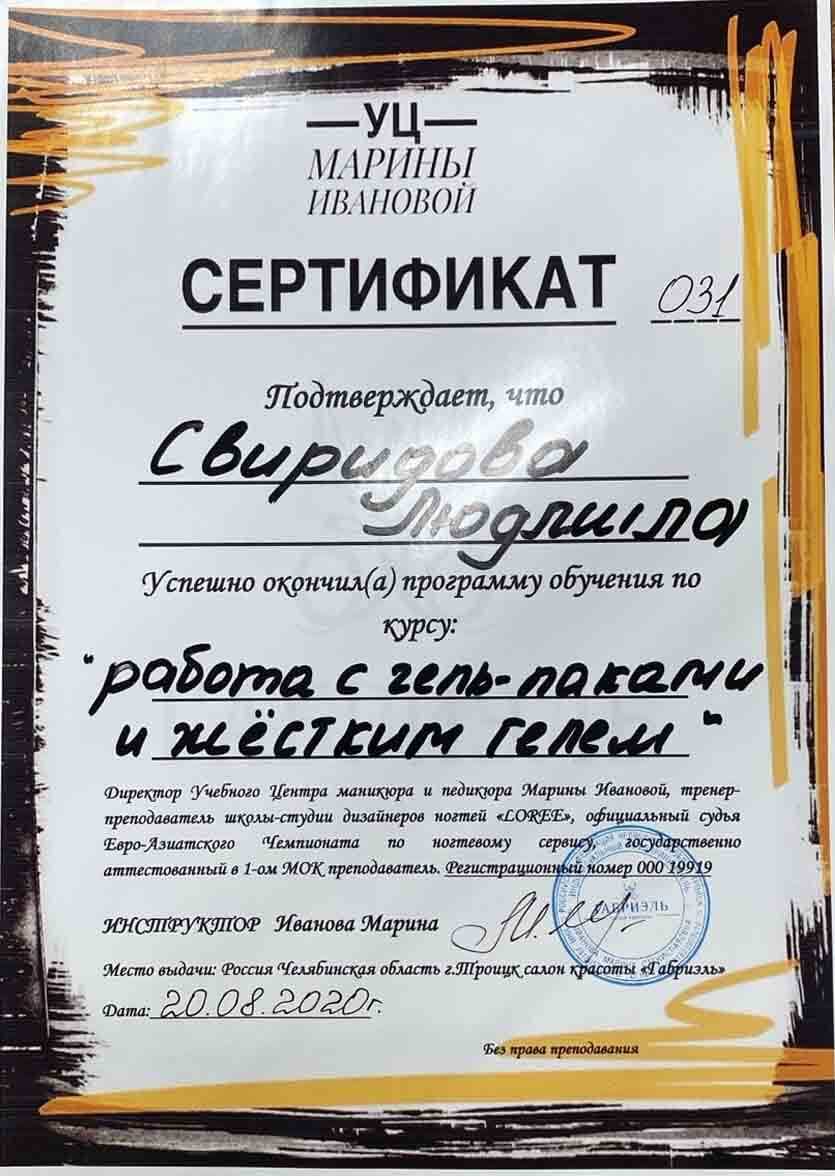 УЦ
МАРИНЫ
ИВАНОВОЙ
СЕРТИФИКАТ 031
Подтверждает, что
Свиридова
Людмила
Успешно окончил(а) программу обучения по
курсу:
"работа с гель-лаками
и жёстким гелем"
Директор Учебного Центра маникюра и педикюра Марины Ивановой, тренер-
преподаватель школы-студии дизайнеров ногтей «LOREE», официальный судья
Евро-Азиатского Чемпионата по ногтевому сервису, государственно
аттестованный в 1-ом МОК преподаватель. Регистрационный номер 000 19919
ГАБРИЭЛЬ
ИНСТРУКТОР Иванова Марина
Место выдачи: Россия Челябинская область г.Троицк салон красоты «Габриэль»
Дата: 20.08.2020г.
Без права преподавания